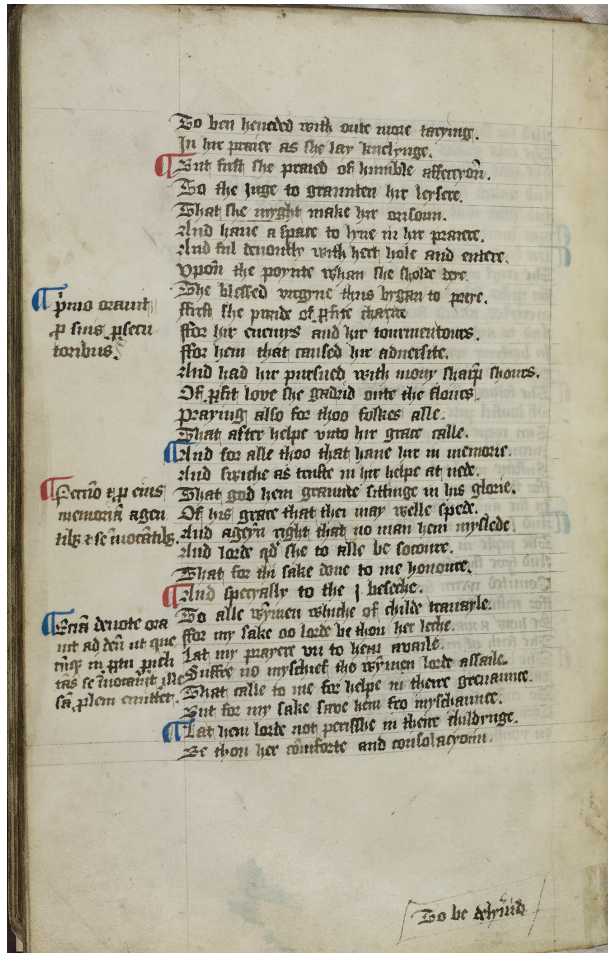 To ben heueded with oute more tarying.
In hir praier as she lay knelynge.
But first she praied of humble affeccyoun.
To the Juge to graunten hir leysere.
That she myght make hir orisoun.
And haue a space to lyue in hir praiere.
And ful deuoutly with hert hole and entere.
Vpon the poynte whan she sholde deye.
The blessed virgyne thus bygan to preye.
ffirst she praide of ꝑfite charite
ffor hir enemys and hir tourmentours.
ffor hem that caused hir aduersite.
And had hir pursued with mony sharp̄ shours.
Of ꝑfit love she gadrid oute the flours.
Praying also for thoo folkes alle.
That after helpe vnto hir grace calle.
And for alle thoo that haue hir in memorie.
And swiche as truste in hir helpe at nede.
That god hem graunte sittinge in his glorie.
Of his grace that thei may welle spede.
And ageyn right that no man hem myslede.
And lorde qđ she to alle be socoure.
That for thi sake done to me honoure.
And specyally to the j beseche.
To alle wȳmen whiche of childe trauayle.
ffor my sake oo lorde be thou her leche.
Lat my prayere vn to hem availe.
Suffre no myschief tho wȳmen lorde assaile.
That calle to me for helpe in theire greuaunce.
But for my sake save hem fro myschaunce.
Lat hem lorde not perisshe in theire childynge.
Be thou her cōmforte and consolacyoun.
p̄mo orauit
ꝓ suis ꝑsecu
toribus.
Secūo & ꝓ eius
memoriā agen
tibꝫ & se inuocātibꝫ.
Eciā deuote ora
uit ad deū ut que
cūqꝫ in ꝑtu ꝑicli
tās se inuocauit ille
sā ꝓlem emittet.
To be delyūid